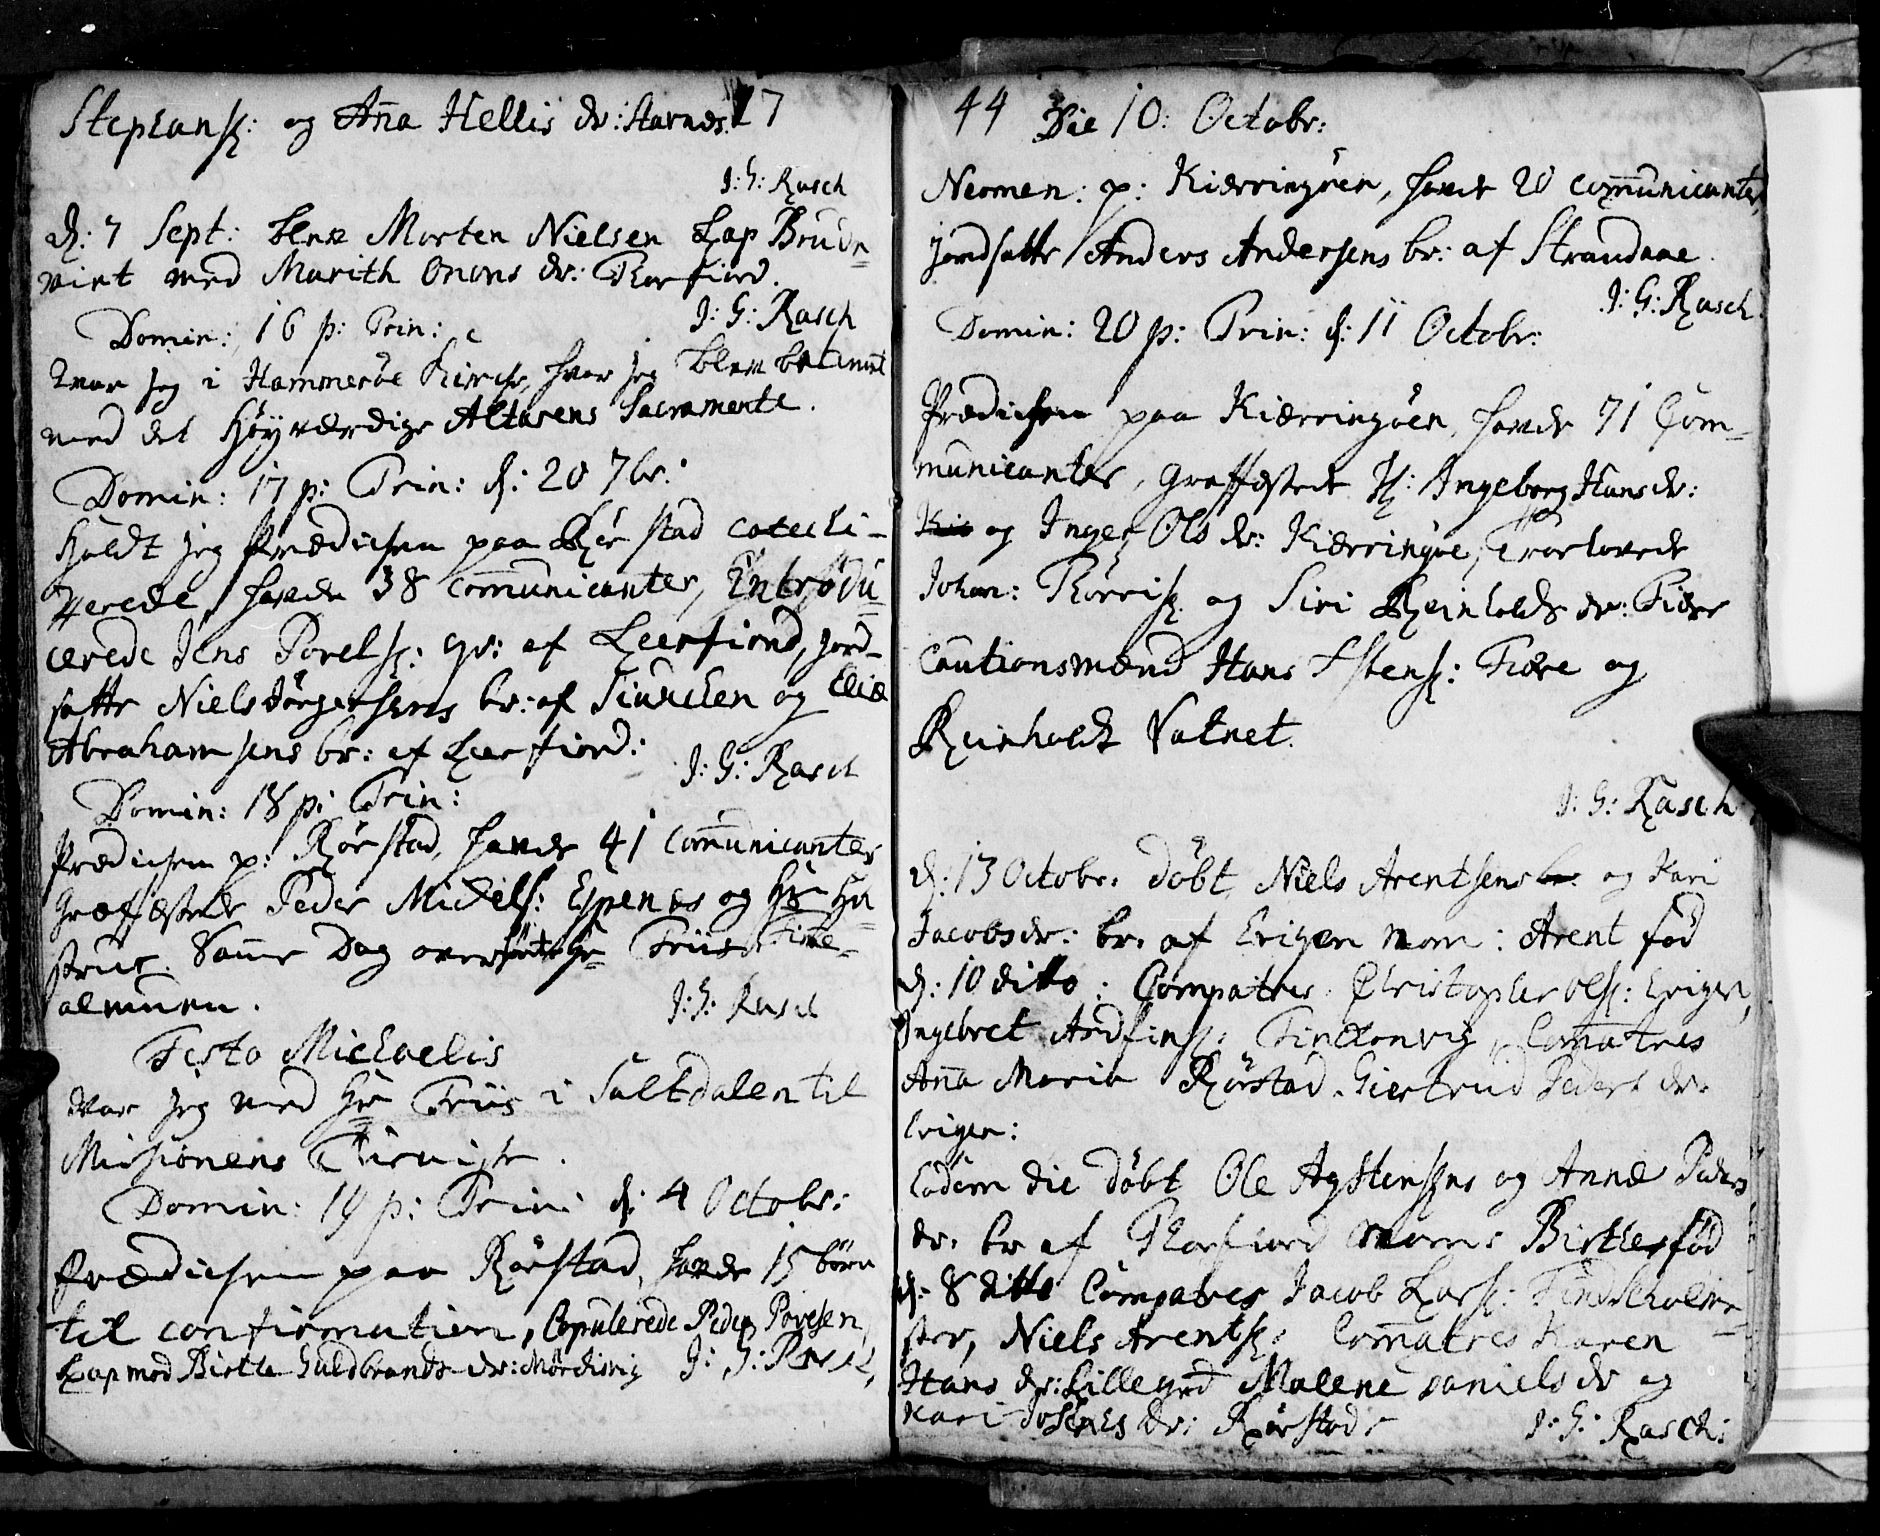 Stephans: og Aña Hellis dr: Starnes. 17
J: G: Rasch
d: 7 Sept: blev Morten Nielsen Lap Brude=
viet med Marith Onons dr: Thorfiord.
J: G: Rasch
Domin: 16 p: Trin:
Var jeg i Hammeröe Kirche, hvor jeg blev betient
med det Höyværdige Altarens Sacramente.
Domin: 17 p: Trin: d: 20 7br:
Holdt jeg Prædichen paa Rörstad catechi-
zerede, havde 38 com̃unicanter, Introdu=
cerede Jens Povels: qv: af Leerfiord, jord-
satte Niels Jörgensens br: af Siunchen og Eliæ
Abrahamsens br: af Leerfiord:
J: G: Rasch
Domin: 18 p: Trin:
Prædichen p: Rörstad, havde 41 Com̃unicanter
Græffæstede Peder Michels: Espenes og
Hustrue. Sam̃e Dag Friis
almuen.
J: G: Rasch
Festo Michaelis
Var jeg med Hr Friis i Saltdalen til
Missionens Tieniste.
Domin: 19 p: Trin: d: 4 Octobr:
Prædichen paa Rörstad, havde 15 börn
til confirmation, Copulerede Peder Povelsen
Lap med Birthe Guldbrands dr: Mördisvig J: G: Rasch
44 Die 10: Octobr:
Nesmen: p: Kierringöen, havde 20 com̃unicanter,
jordsatte Anders Andersens br: af Strandaae.
J: G: Rasch
Domin: 20 p: Trin: d: 11 Octobr:
Prædichen paa Kierringöen, havde 71 Com-
municanter, Græffæstede Ingeborg Hansdr:
og Inger Ols dr: Kierringöe, Trorlovede
Johan: Thörris: og Siri Reinholds dr: Fiære
Cautionsmænd Hans Ystens: Fiære og
Reinholdt Vatnet.
J: G: Rasch
d: 13 Octobr: döbt Niels Arentsens og Kari
Jacobsdr: br. af Erigen nom: Arent föd
d: 10 ditto: Compatres Christopher Ols: Erigen,
Ingebret Andfins: Findtonvig, Com̃atres
Aña Maria Rörstad, Giertrud Peders dr.
Erigen:
Eodem die döbt Ole Agstensens og Annæ Peders
dr. br af Thorfiord nom: Birthe, föd
d: 8 ditto Compatres Jacob Lars: Findtholm=
ster, Niels Arents: Com̃atres Karen
Hans dr: Lillegrd Malene Daniels dr og
Kari dr: Rörstad.
J: G: Rasch: